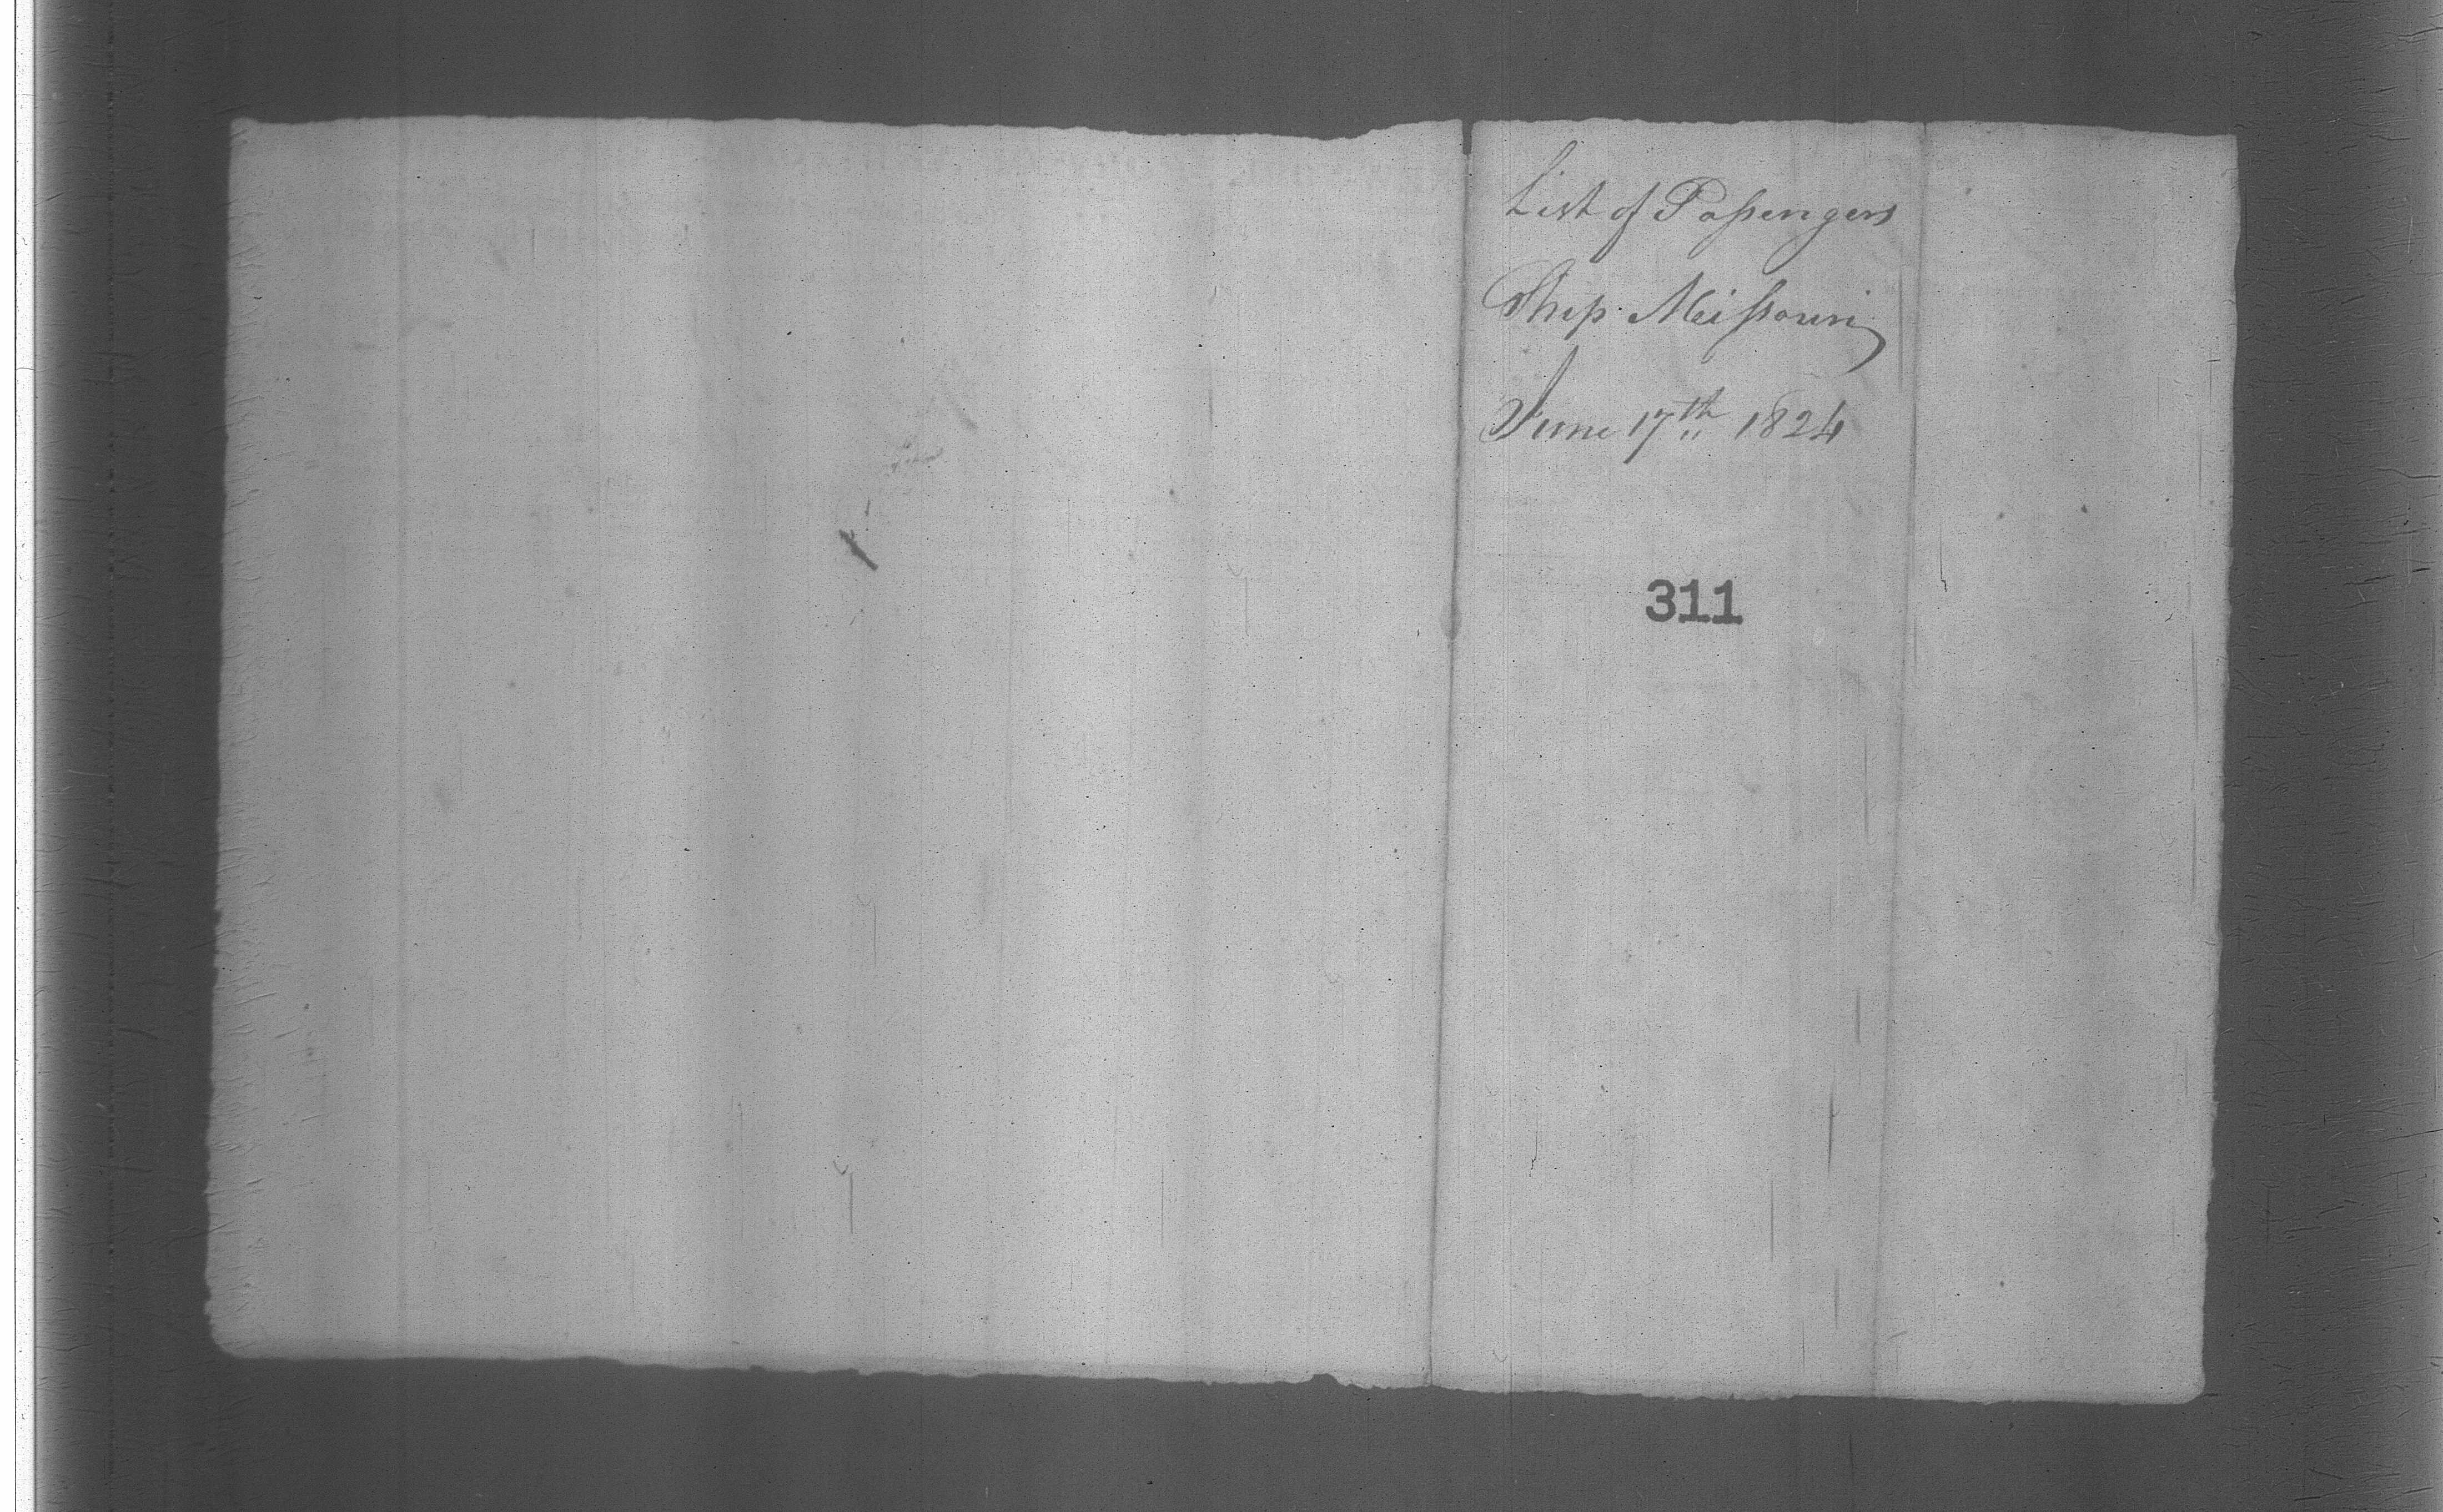 List of Passengers
Ship Missouri
June 17th 1824
311